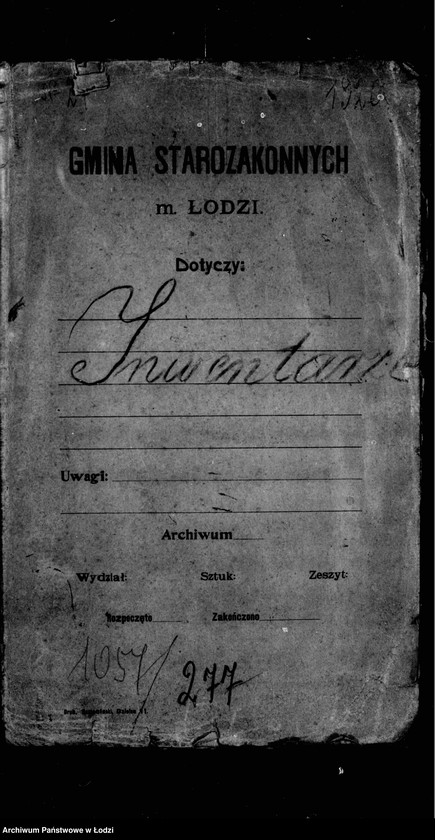 GMINA STAROZAKONNYCH
m. ŁODZI.
Dotyczy:
Uwagi:
Archiwum
Wydział: Sztuk: Zeszyt:
Rozpoczęto Zakończono
1057/ 277
Archiwum Państwowe w Łodzi